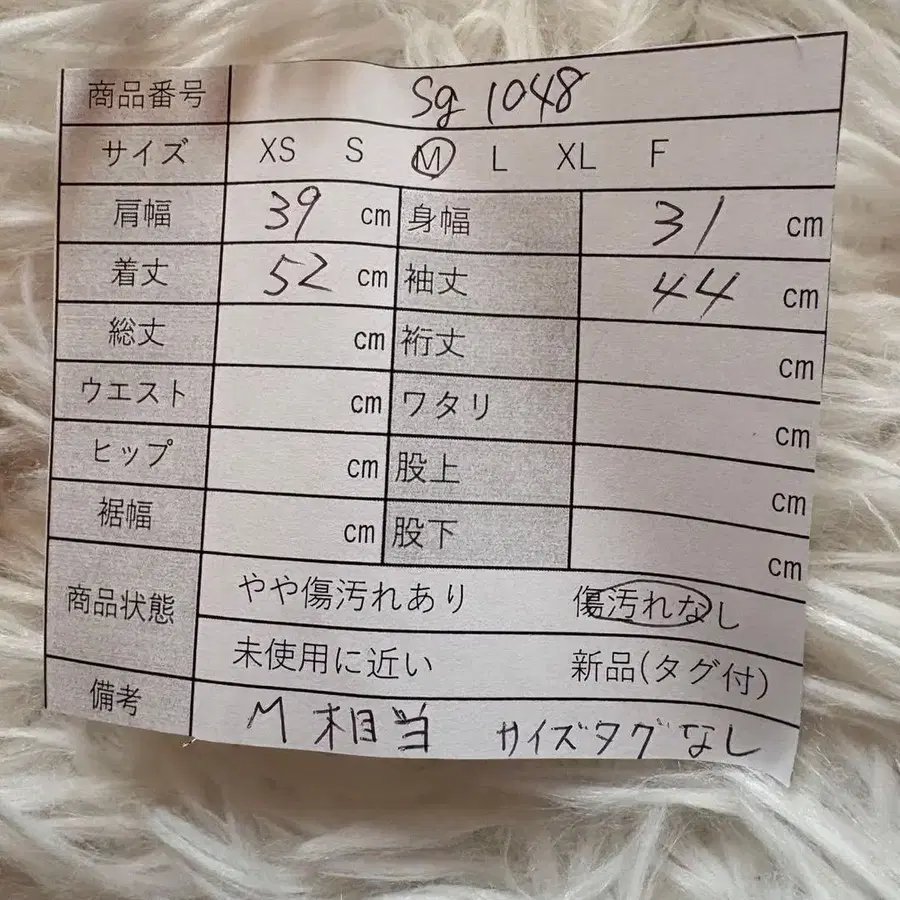 商品番号 Sg 1048
サイズ XS S M L XL F
肩幅 39 cm 身幅 31 cm
着丈 52 cm 袖丈 44 cm
総丈 cm 裄丈 cm
ウエスト cm ワタリ cm
ヒップ cm 股上 cm
裾幅 cm 股下 cm
商品状態 やや傷汚れあり 傷汚れなし
未使用に近い 新品(タグ付)
備考 M相当 サイズタグなし